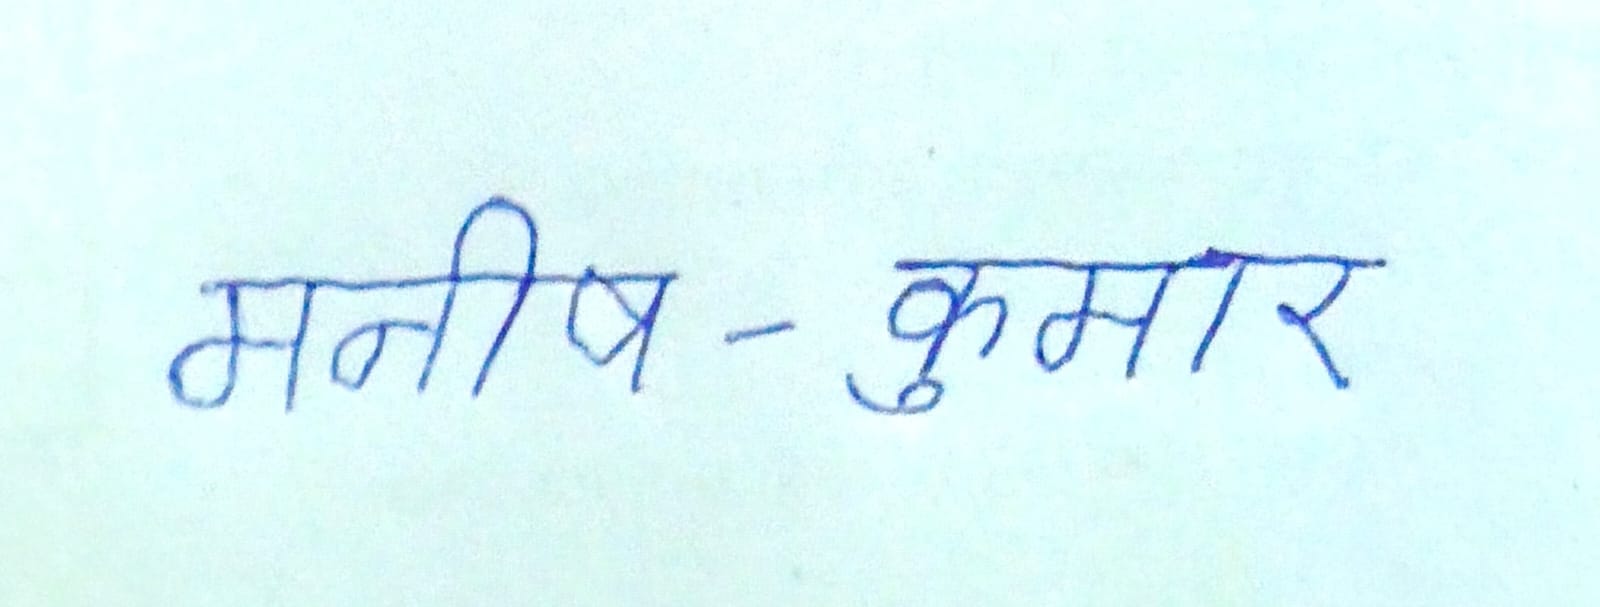 मनीष - कुमार